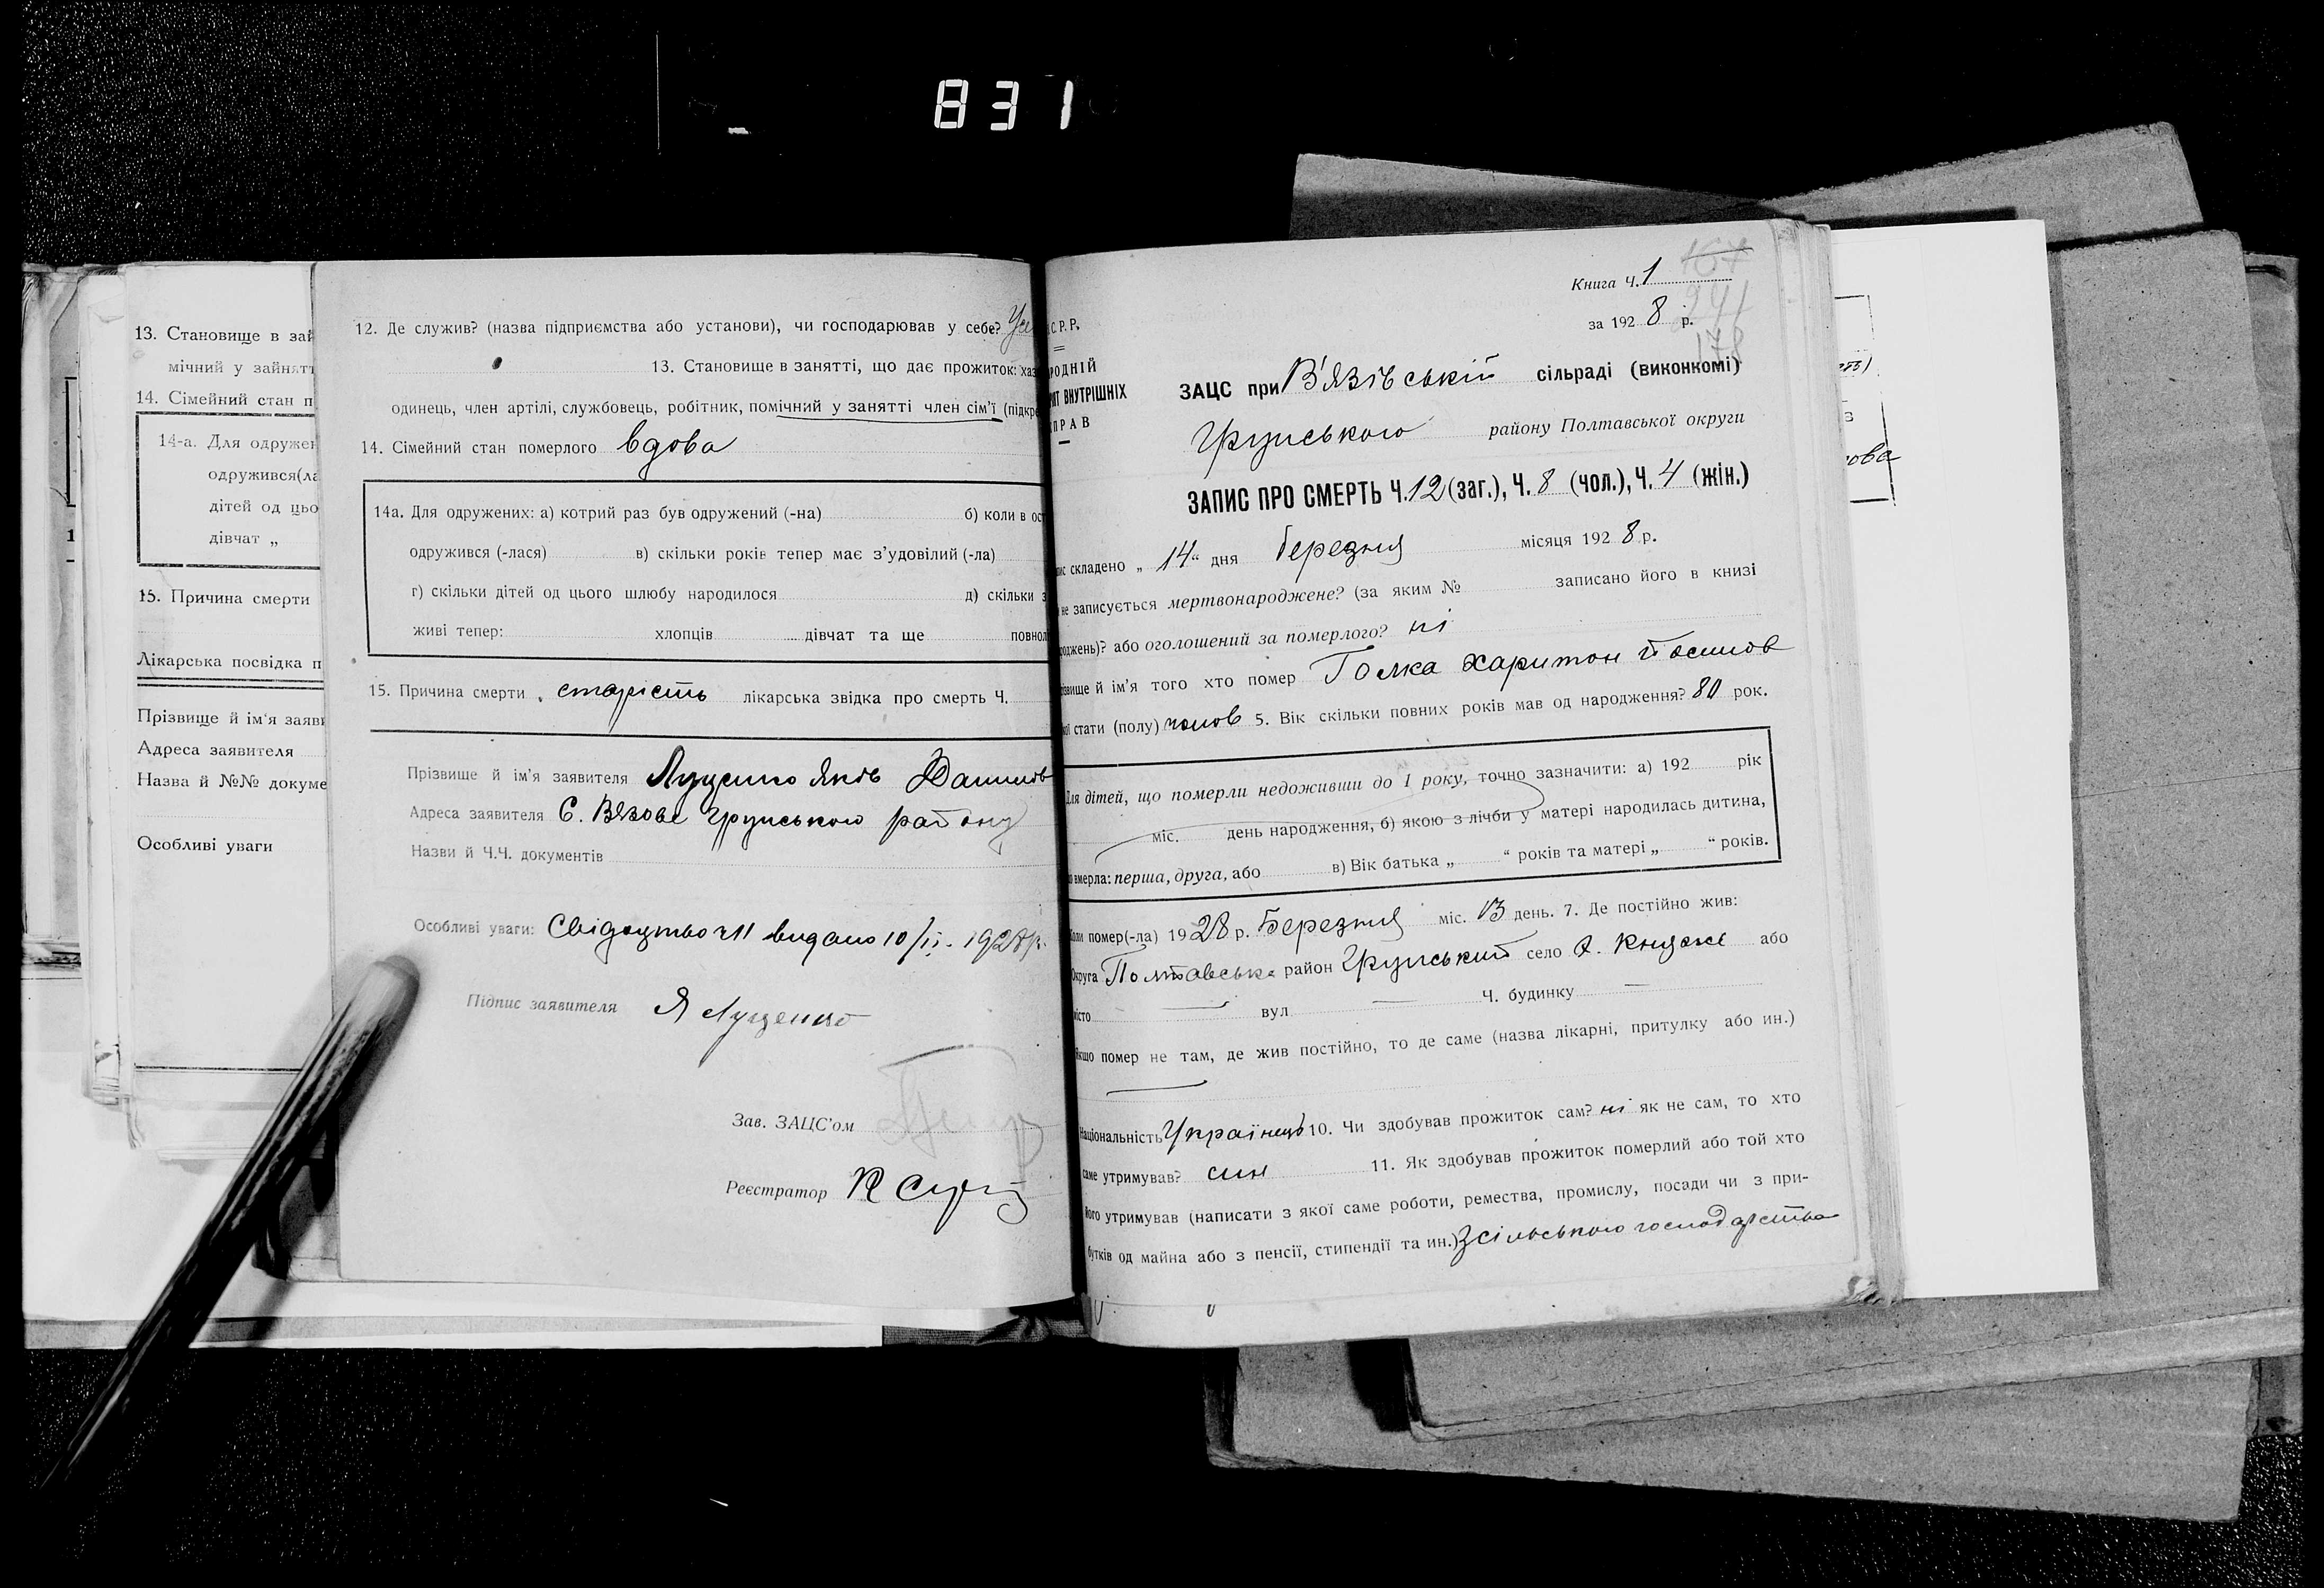 831
13. Становище в зай
мічний у зайнятт
14. Сімейний стан п
14-а. Для одружен
одружився(ла
дітей од цьо
дівчат „
15. Причина смерти
Лікарська посвідка п
Прізвище й ім'я заяви
Адреса заявителя
Назва й №№ докуме
Особливі уваги
12. Де служив? (назва підприємства або установи), чи господарював у себе?
13. Становище в занятті, що дає прожиток: хаз
одинець, член артілі, службовець, робітник, помічний у занятті член сім'ї (підкре
14. Сімейний стан померлого вдова
14а. Для одружених: а) котрий раз був одружений (-на) б) коли в ост
одружився (-лася) в) скільки років тепер має з'удовілий (-ла)
г) скільки дітей од цього шлюбу народилося д) скільки з
живі тепер: хлопців дівчат та ще повнол
15. Причина смерти старість лікарська звідка про смерть Ч.
Прізвище й ім'я заявителя Луценко Яків Данилов
Адреса заявителя С. Вязове Грунського району
Назви й Ч.Ч. документів
Особливі уваги: Свідоцтво ч 11 видано 10/II - 1928 р.
Підпис заявителя Я Луценко
Зав. ЗАЦС'ом
Реєстратор
С.Р.Р.
РОДНІЙ
ЯТ ВНУТРІШНІХ
ПРАВ
Книга Ч. 1
167
241
178
за 1928 р.
ЗАЦС при В'язівській сільраді (виконкомі)
Грунського району Полтавської округи
ЗАПИС ПРО СМЕРТЬ Ч. 12 (заг.), Ч. 8 (чол.), Ч. 4 (жін.)
ис складено „ 14 “ дня березня місяця 1928 р.
не записується мертвонароджене? (за яким № записано його в книзі
роджень)? або оголошений за померлого? ні
звище й ім'я того хто помер Голка Харитон
ої стати (полу) чолов 5. Вік скільки повних років мав од народження? 80 рок.
Для дітей, що померли недоживши до 1 року, точно зазначити: а) 192 рік
міс. день народження, б) якою з лічби у матері народилась дитина,
о вмерла: перша, друга, або в) Вік батька „ “ років та матері „ “ років.
Коли помер(-ла) 1928 р. Березня міс. 13 день. 7. Де постійно жив:
Округа Полтавська район Грунський село х. Княже або
місто вул Ч. будинку
Якщо помер не там, де жив постійно, то де саме (назва лікарні, притулку або ин.)
Національність Українець 10. Чи здобував прожиток сам? ні як не сам, то хто
саме утримував? син 11. Як здобував прожиток померлий або той хто
його утримував (написати з якої саме роботи, ремества, промислу, посади чи з при-
бутків од майна або з пенсії, стипендії та ин.) З сільського господарства